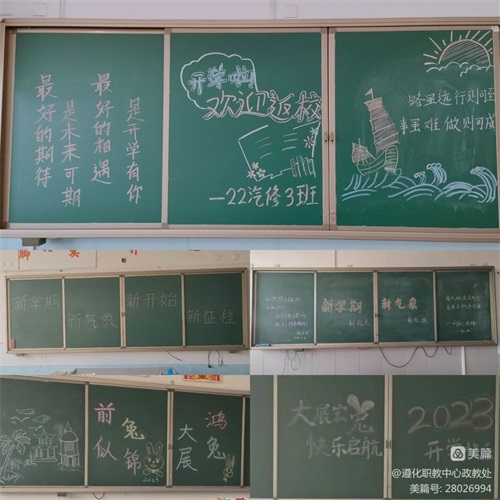 最好的期待
是未来可期
最好的相遇
是开学有你
开学啦!
欢迎返校
—22汽修3班
路虽远行则可至
事虽难 做则可成
新学期
新气象
新开始
新征程
新学期
新气象
前兔似锦
大展鸿兔
2023
大展宏兔
快乐启航
2023
开学
美篇
@遵化职教中心政教处
美篇号: 28026994